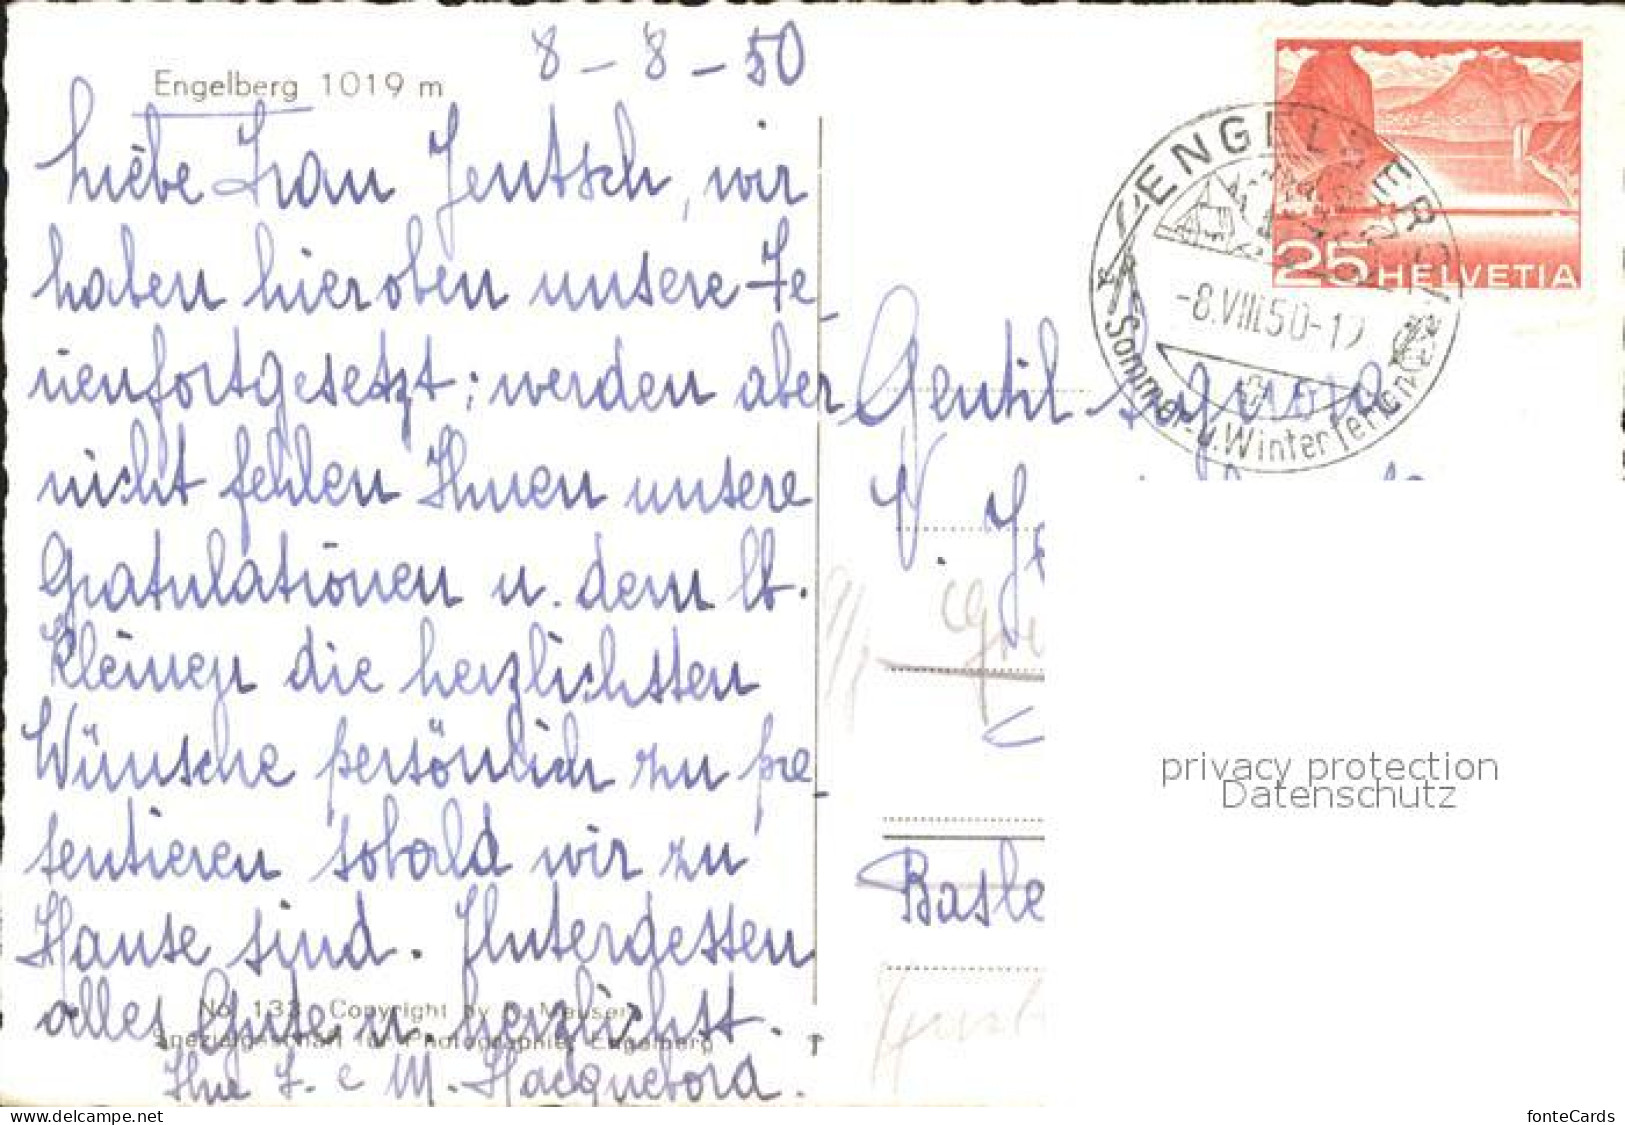 Engelberg 1019 m
8-8-50
Liebe Frau Jentsch, wir
haben hieroben unsere Fe-
rienfortgesetzt; werden aber
nicht fehlen Ihnen unsere
Gratulationen u. dem lb.
Kleinen die herzlichsten
Wünsche persönlich zu prä-
sentieren sobald wir zu
Hause sind. Unterdessen
alles Gute u. herzlichst.
Ihre F. e M. Hacquebord.
No. 133 Copyright by Meuser
Spezialgeschäft für Photographie, Engelberg
25 HELVETIA
ENGELBERG
-8.VIII.50-19
Sommer- u. Winterferien
Gentil Signora
N. Je
Basle
privacy protection
Datenschutz
fonteCards